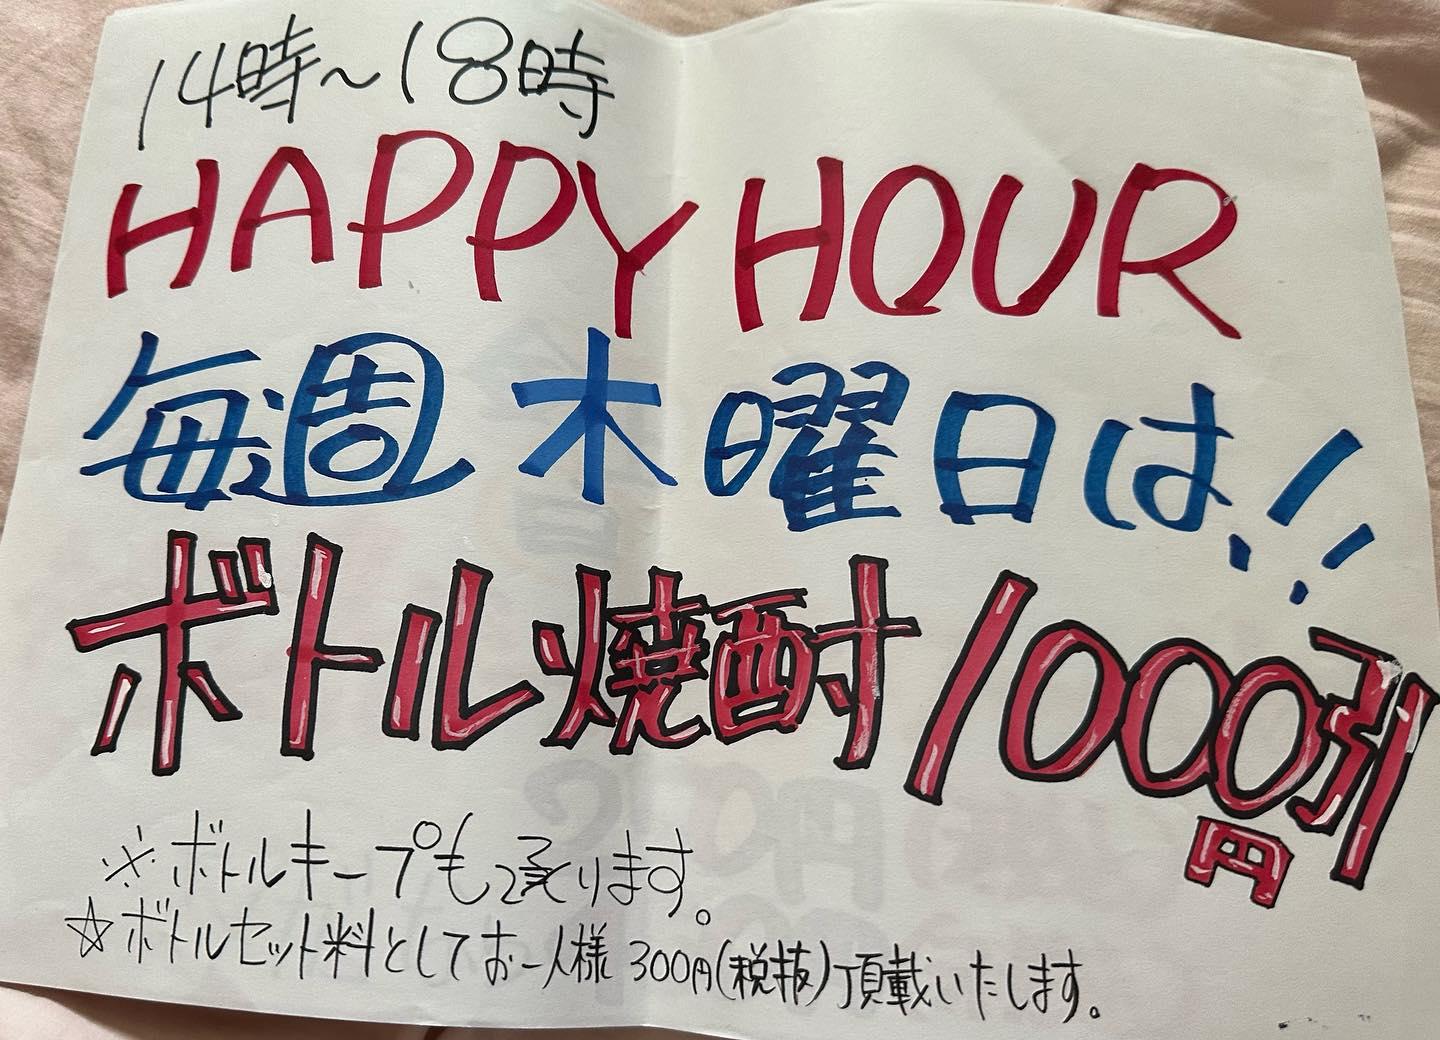 14時～18時
HAPPY HOUR
毎週木曜日は!!
ボトル焼酎1000円引
※ボトルキープも承ります。
☆ボトルセット料としてお一人様300円(税抜)頂載いたします。